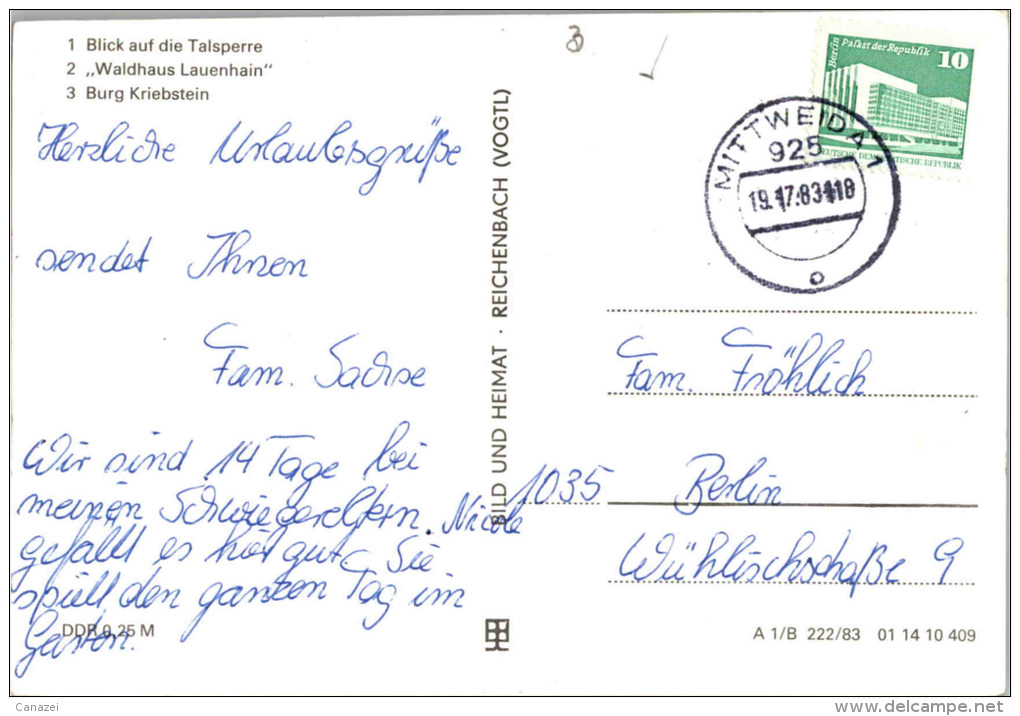 1 Blick auf die Talsperre
2 „Waldhaus Lauenhain"
3 Burg Kriebstein
Herzliche Urlaubsgrüße
sendet Ihnen
Fam. Sachse
Wir sind 14 Tage bei
meinen Schwiegereltern. Nicole
gefällt es hier gut. Sie
spielt den ganzen Tag im
Garten.
DDR 0,25 M
BILD UND HEIMAT · REICHENBACH (VOGTL)
3
Berlin Palast der Republik 10
DEUTSCHE DEMOKRATISCHE REPUBLIK
MITTWEIDA 1
925
Fam. Fröhlich
1035 Berlin
Wühlischstraße 9
A 1/B 222/83 01 14 10 409
Canazei
www.delcampe.net